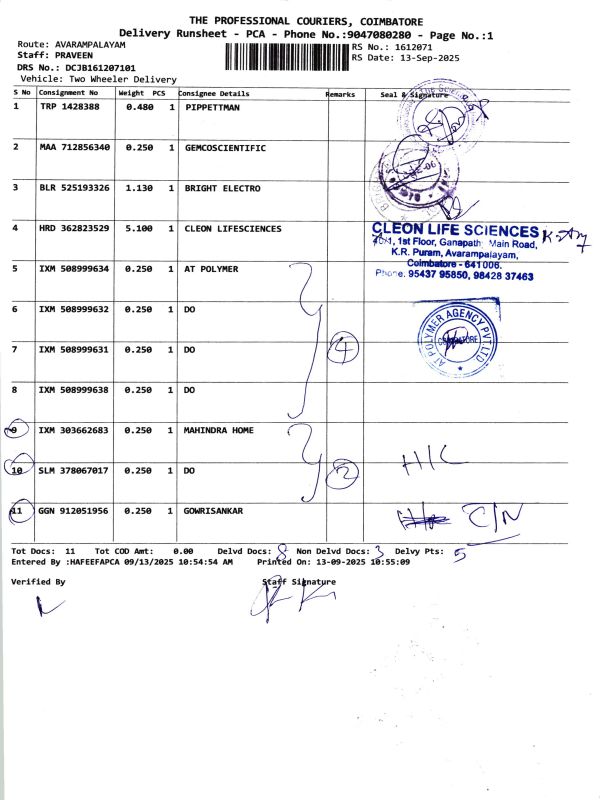 THE PROFESSIONAL COURIERS, COIMBATORE
Delivery Runsheet - PCA - Phone No.:9047080280 - Page No.:1
Route: AVARAMPALAYAM
RS No.: 1612071
Staff: PRAVEEN
RS Date: 13-Sep-2025
DRS No.: DCJB161207101
Vehicle: Two Wheeler Delivery
S No Consignment No Weight PCS Consignee Details Remarks Seal & Signature
1 TRP 1428388 0.480 1 PIPPETTMAN
2 MAA 712856340 0.250 1 GEMCOSCIENTIFIC
3 BLR 525193326 1.130 1 BRIGHT ELECTRO
4 HRD 362823529 5.100 1 CLEON LIFESCIENCES
CLEON LIFE SCIENCES
1st Floor, Ganapathy Main Road,
K.R. Puram, Avarampalayam,
Coimbatore - 641006.
Phone: 95437 95850, 98428 37463
5 IXM 508999634 0.250 1 AT POLYMER
6 IXM 508999632 0.250 1 DO
7 IXM 508999631 0.250 1 DO 4
AT POLYMER AGENCY PVT. LTD
COIMBATORE
8 IXM 508999638 0.250 1 DO
9 IXM 303662683 0.250 1 MAHINDRA HOME
10 SLM 378067017 0.250 1 DO 2 H/C
11 GGN 912051956 0.250 1 GOWRISANKAR C/N
Tot Docs: 11 Tot COD Amt: 0.00 Delvd Docs: 8 Non Delvd Docs: 3 Delvy Pts: 5
Entered By :HAFEEFAPCA 09/13/2025 10:54:54 AM Printed On: 13-09-2025 10:55:09
Verified By Staff Signature